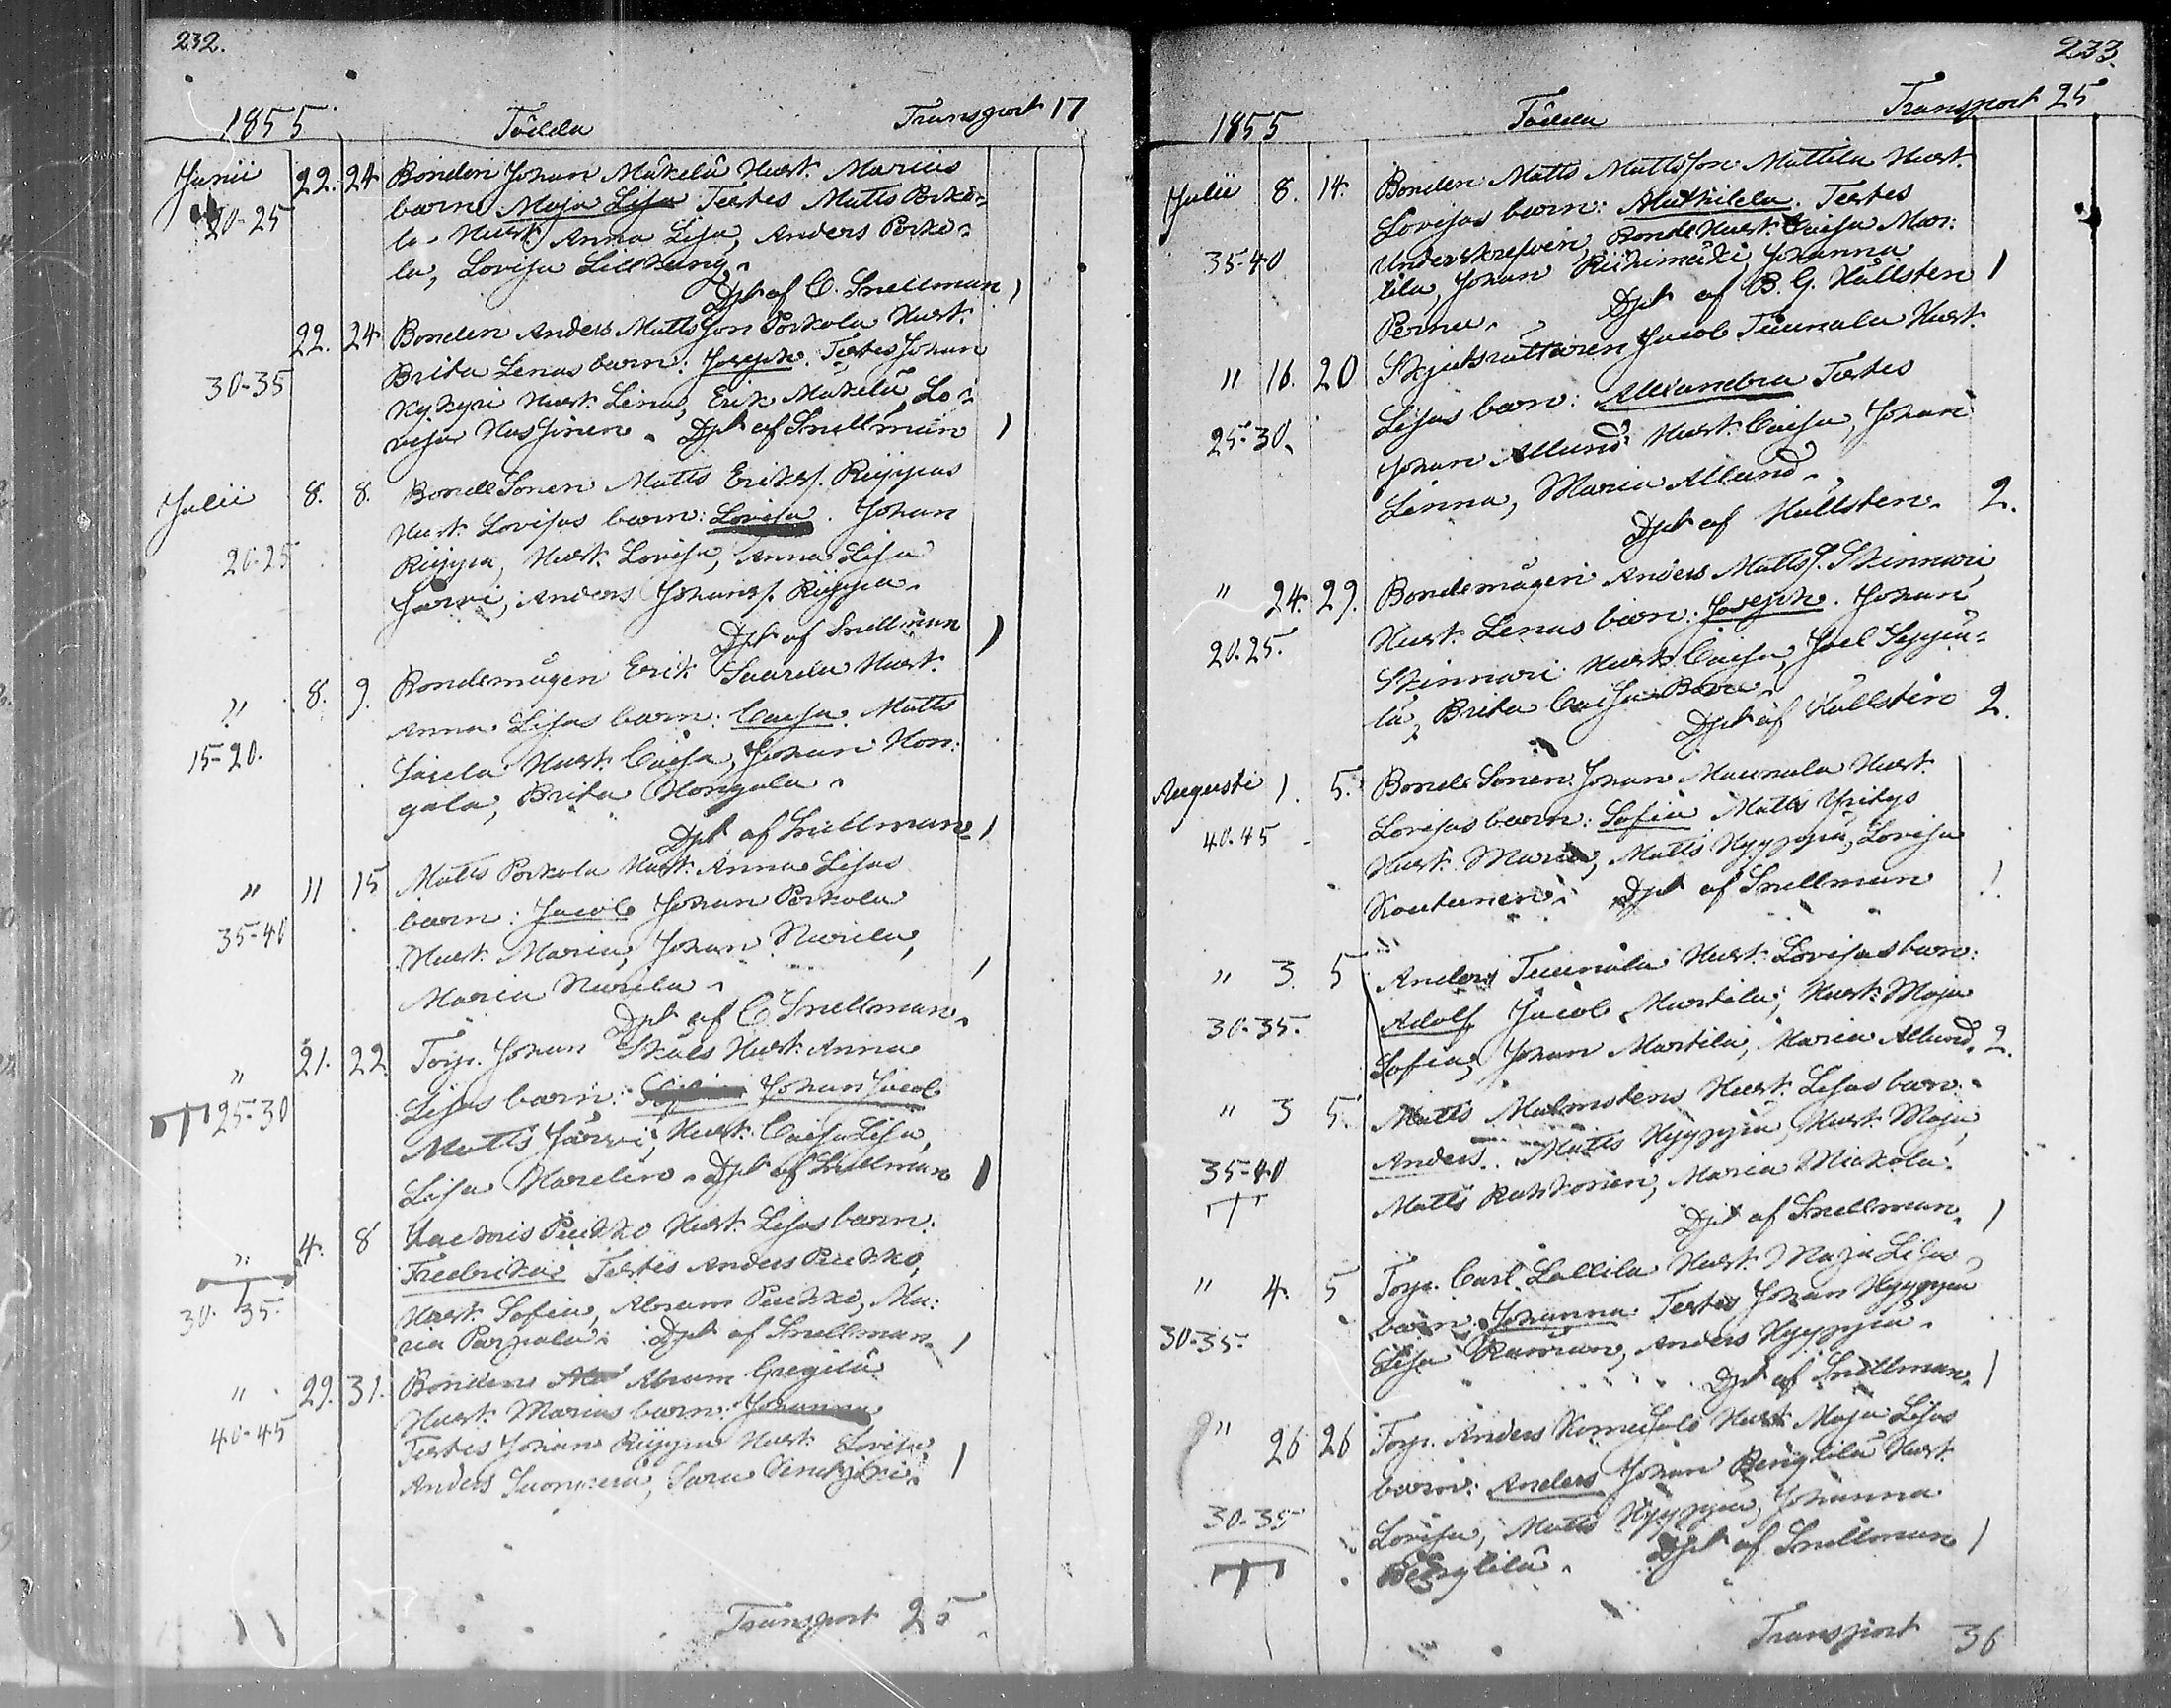 232.
1855 Födda Transport 17
Junii 22. 24 Bonden Johan Mäkelä Hust. Marias
20-25 barn Maja Lisa Testes Matts Porko-
la Hust. Anna Lisa, Anders Porko-
la, Lovisa Lillkung.
Dpt af C. Snellman 1
22. 24 Bonden Anders Mattsson Porkola Hust.
Brita Lenas barn: Joseph. Testes Johan
30-35 Kykyri Hust. Lena, Erik Mäkelä, Lo-
visa Hassinen. Dpt af Snellman 1
Julii 8. 8. Bonde Sonen Matts Eriks. Riippas
Hust. Lovisas barn: Lovisa. Johan
20-25 Riippa, Hust. Lovisa, Anna Lisa
Järvi, Anders Johans. Riippa.
Dpt af Snellman 1
" 8. 9. Bondemågen Erik Saarela Hust.
Anna Lisas barn: Caisa. Matts
15-20. Hust. Caisa, Johan Hon-
gala, Brita Hongala.
Dpt af Snellman 1
" 11 15 Matts Porkola Hust. Anna Lisas
barn: Jacob Johan Porkola
35-40 Hust. Maria, Johan Nurila,
Maria Nurila. 1
Dpt af C. Snellman.
" 21. 22. Torp. Johan Skals Hust. Anna
Lisas barn: Johan Jacob
25-30 Matts Järvi, Hust. Caisa Lisa,
Lisa Harelin. Dpt af Snellman 1
" 4. 8 Puckko Hust. Lisas barn:
Fredrika Testes Anders Puckko,
30-35. Hust. Sofia, Abram Puckko, Ma-
ria Parpala. Dpt af Snellman. 1
" 29. 31. Bonden Abram Gregilä
Hust. Marias barn: Johanna
40-45 Testes Johan Riippa Hust. Lovisa,
Anders, Sara 1
Transport 25
233.
1855 Födda Transport 25
Julii 8. 14. Bonden Matts Mattsson Mattila Hust.
Lovisas barn: Mathilda. Testes
35-40 Underskrefven, Bonde Hust. Caisa Mar-
tila, Johan Riihimäki, Johanna
Perna. Dpt af B. G. Hällsten 1
" 16. 20 Skjutsrättaren Jacob Tuunala Hust.
Lisas barn: Alexandra Testes
25-30. Johan Allund Hust. Caisa, Johan
Linna, Maria Allund.
Dpt af Hällsten. 2.
" 24. 29. Bondemågen Anders Matts. Skinnari,
Hust. Lenas barn: Joseph. Johan
20-25. Skinnari Hust. Caisa, Joel Seppä-
lä, Brita Caisa
Dpt af Hällsten 2.
Augusti 1. 5. Bonde Sonen Johan Maunula Hust.
Lovisas barn: Sofia Matts Yritys
40-45 Hust. Maria, Matts Hyyppä, Lovisa
Koutunen. Dpt af Snellman 1
" 3. 5 Anders Tuunala Hust. Lovisas barn:
Adolf Jacob Martila, Hust. Maja
30-35. Sofia, Johan Martila, Maria Allund. 2.
" 3 5. Matts Malmstens Hust. Lisas barn:
Anders. Matts Hyyppä, Hust. Maja,
35-40 Matts Ruskonen, Maria Mickola.
Dpt af Snellman. 1
" 4. 5 Torp. Carl Lallila Hust. Maja Lisas
barn: Johanna Testes Johan Hyyppä
30-35. Lisa, Anders Hyyppä.
Dpt af Snellman. 1
" 26 26 Torp. Anders Komusalo Hust. Maja Lisas
barn: Anders Johan Bengtilä Hust.
30-35 Lovisa, Matts Hyyppä, Johanna
Bengtilä. Dpt af Snellman 1
Transport 36